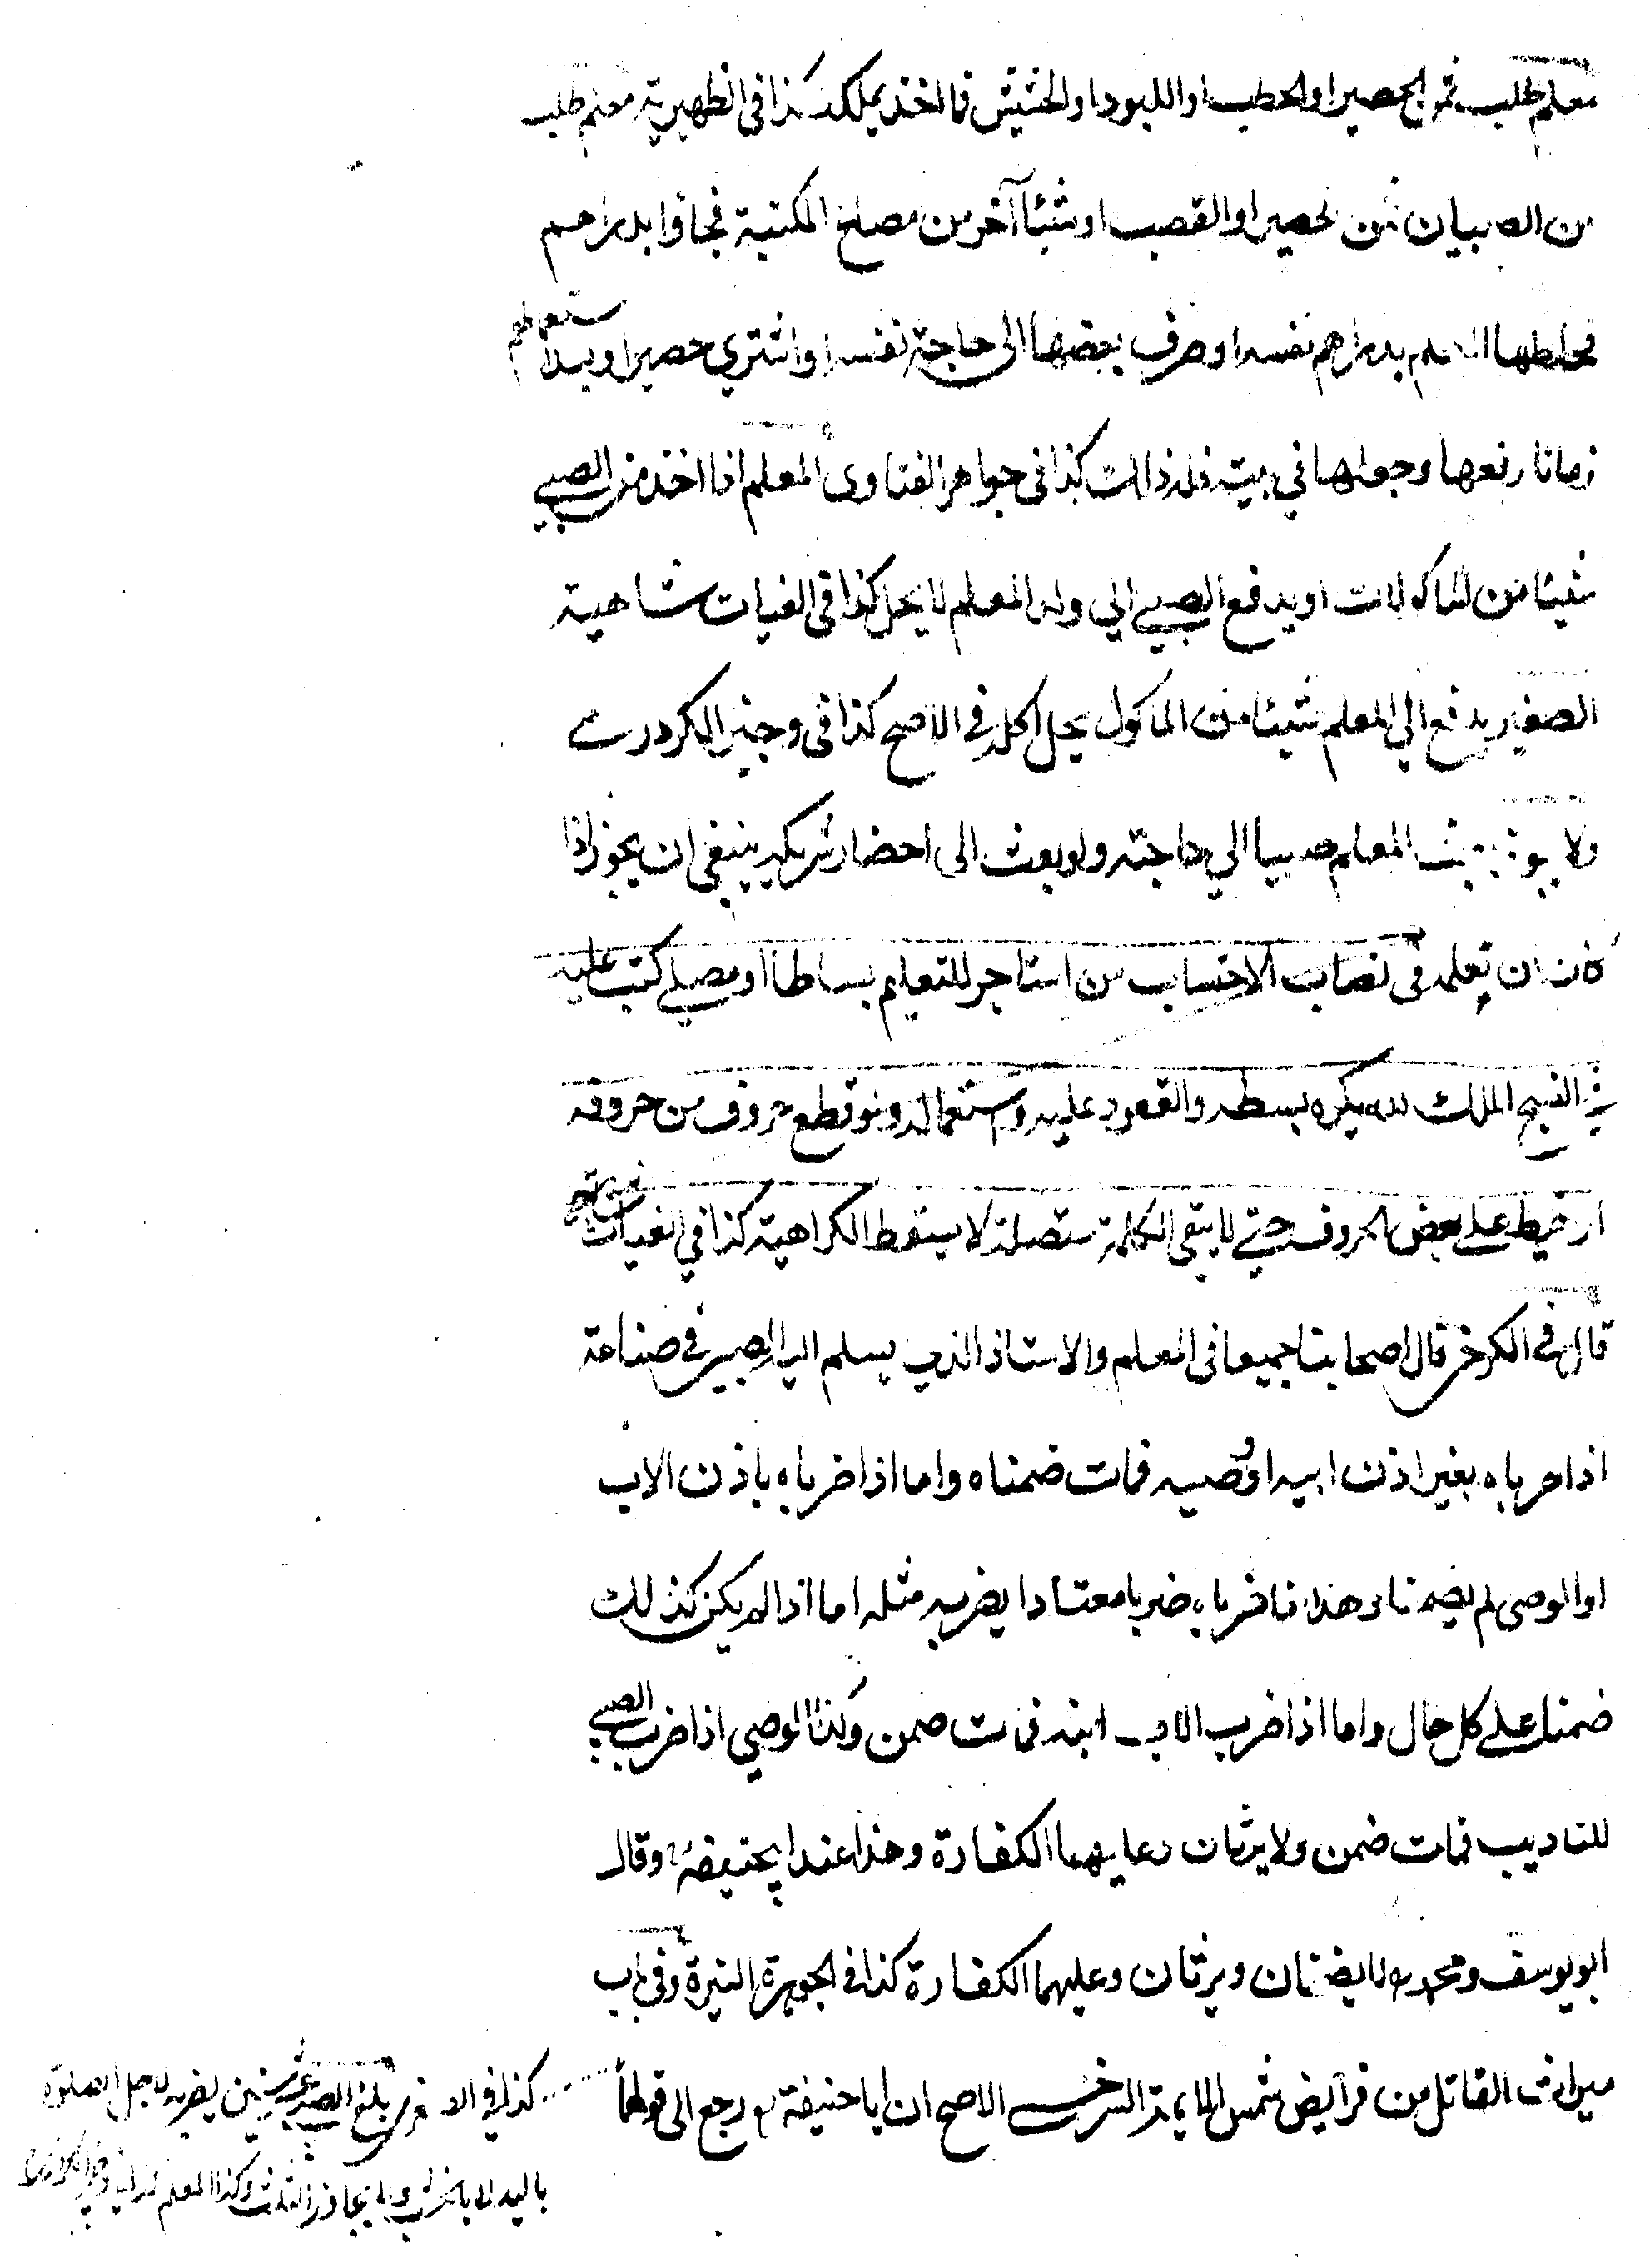 معلم طلب ثمن الحصير او الحطب او اللبود او الحشيش فما اخذ يملكه كذا في الظهيرية معلم طلب
من الصبيان ثمن الحصير او القصب او شيئا آخر من مصالح المكتبة فجاؤا بدراهم
فخلطها المعلم بدراهم نفسه او صرف بعضها الى حاجة نفسه او اشترى حصيرا وبعد استعمالهم
زمانا رفعها وجعلها في بيته فله ذالك كذا في جواهر الفتاوى المعلم اذا اخذ من الصبي
شيئا من الماكولات او يدفع الصبي الي ولد المعلم لا يحل كذا في الغياث شاهية
الصغير يدفع الي المعلم شيئا من الماكول يحل اكله في الاصح كذا في وجيز الكردرے
ولا يجوز بعث المعلم صبيا الي حاجته ولو بعث الى احضار شريكه ينبغي ان يجوز اذا
كان ان تعلمه في نصاب الاحتساب من استاجر للتعليم بساطا او مصلي كتب عليه
في النسج الملك لله يكره بسطه والقعود عليه واستعماله ولو قطع حروف من حروفه
او خيط على بعض الحروف حتي لا يبقى الكلمة متصلة لا يسقط الكراهية كذا في الغياث
قال في الكرخي قال اصحابنا جميعا في المعلم والاستاذ الذي يسلم اليه الصبي في صناعة
اذا ضرباه بغير اذن ابيه او وصيه فمات ضمناه واما اذا ضرباه باذن الاب
او الوصى لم يضمنا وهذا اذا ضرباه ضربا معتادا يضرب مثله اما اذا لم يكن كذالك
ضمنا على كل حال واما اذا ضرب الاب ابنه فمات ضمن وكذا الوصي اذا ضرب الصبي
للتاديب فمات ضمن ولا يرثان وعليهما الكفارة وهذا عند ابيحنيفة وقال
ابو يوسف ومحمد لا يضمنان ويرثان وعليهما الكفارة كذا في الجوهرة النيرة وفي باب
ميراث القاتل من فرائض شمس الايمة السرخسي الاصح ان ابا حنيفة رجع الى قولهما
كذا في بلغ الصبي عشر سنين يضرب لاجل الصلوة
باليد لا بالخشب ولا يجاوز الثلث وكذا المعلم